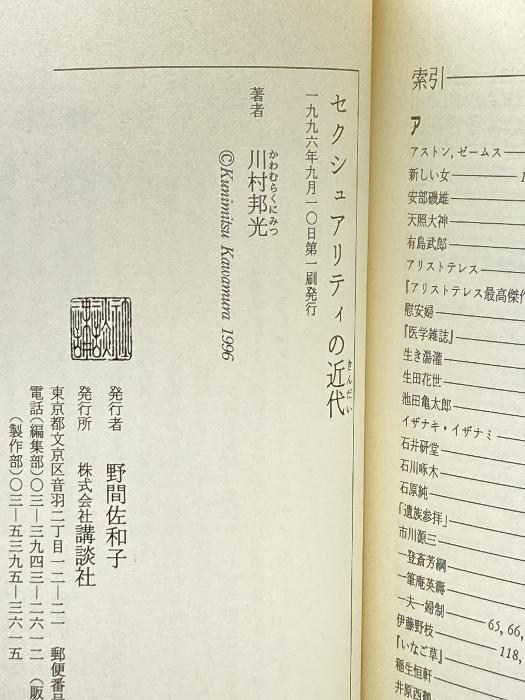 セクシュアリティの近代
きんだい
一九九六年九月一〇日第一刷発行
著者 川村邦光
かわむらくにみつ
©Kunimitsu Kawamura 1996
発行者 野間佐和子
発行所 株式会社講談社
東京都文京区音羽二丁目一二―二一 郵便番号
電話(編集部)〇三―三九四三―二六一二 (販
(製作部)〇三―五三九五―三六一五
索引
ア
アストン, ゼームス
新しい女
安部磯雄
天照大神
有島武郎
アリストテレス
『アリストテレス最高傑作
慰安婦
『医学雑誌』
生き湯灌
生田花世
池田亀太郎
イザナキ・イザナミ
石井研堂
石川啄木
石原純
「遺族参拝」
市川源三
一登斎芳綱
一筆庵英壽
一夫一婦制 65, 66,
伊藤野枝 118,
『いなご草』
稲生恒軒
井原西鶴